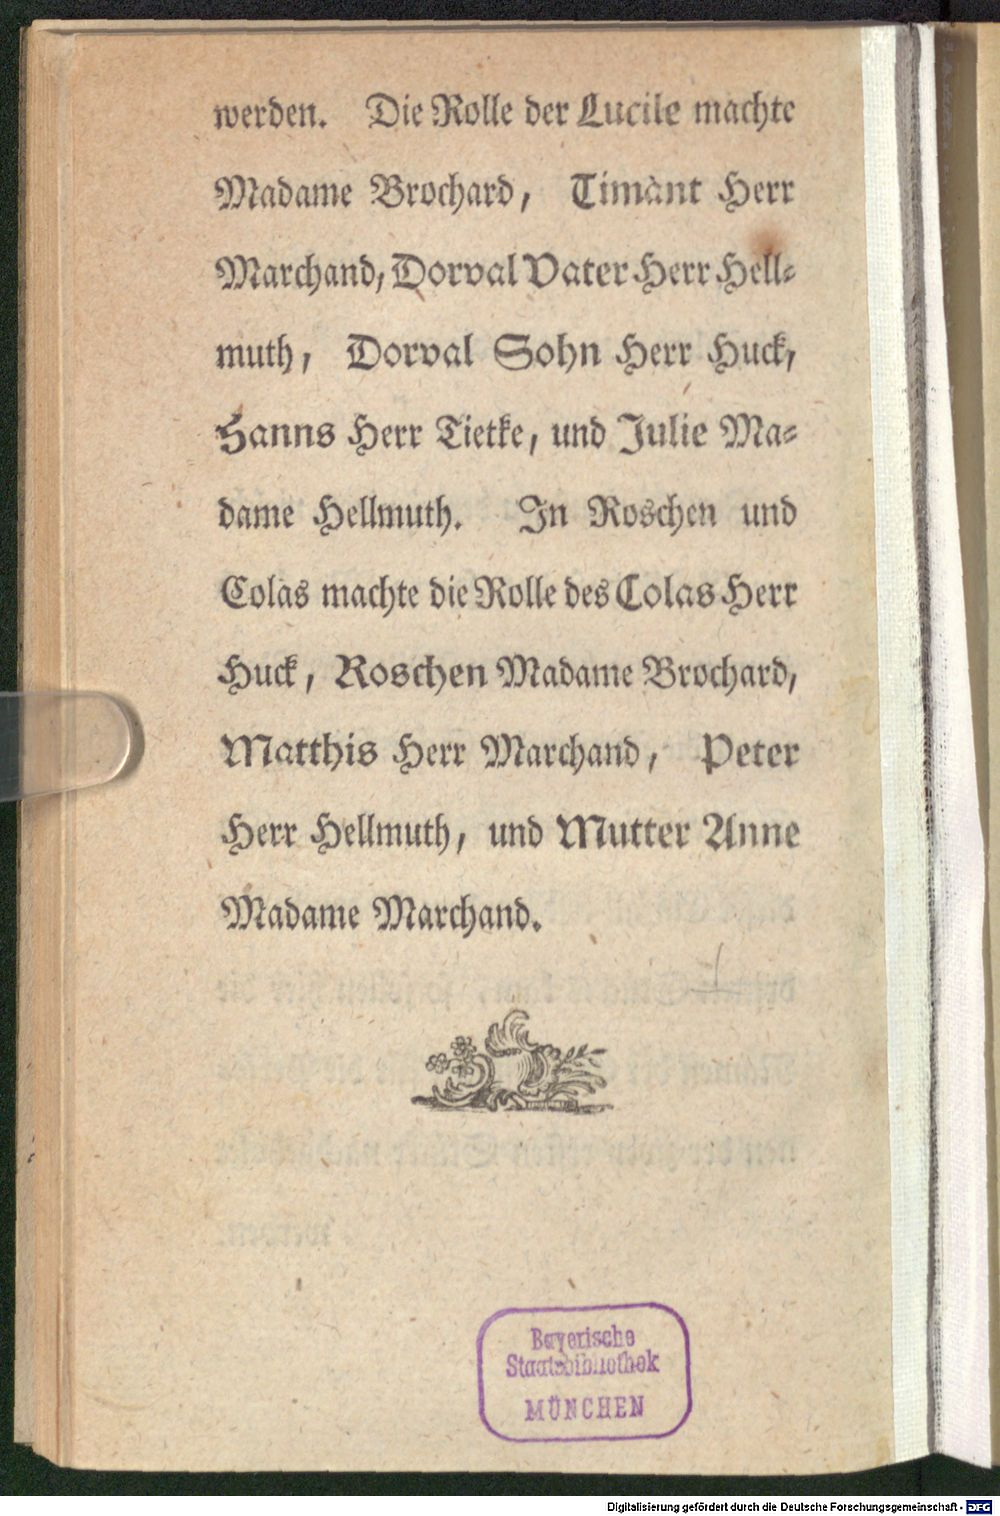 werden. Die Rolle der Lucile machte
Madame Brochard, Timant Herr
Marchand, Dorval Vater Herr Hell⸗
muth, Dorval Sohn Herr Huck,
Hanns Herr Tietke, und Julie Ma⸗
dame Hellmuth. In Roschen und
Colas machte die Rolle des Colas Herr
Huck, Roschen Madame Brochard,
Matthis Herr Marchand, Peter
Herr Hellmuth, und Mutter Anne
Madame Marchand.
Bayerische
Staatsbibliothek
MÜNCHEN
Digitalisierung gefördert durch die Deutsche Forschungsgemeinschaft - DFG